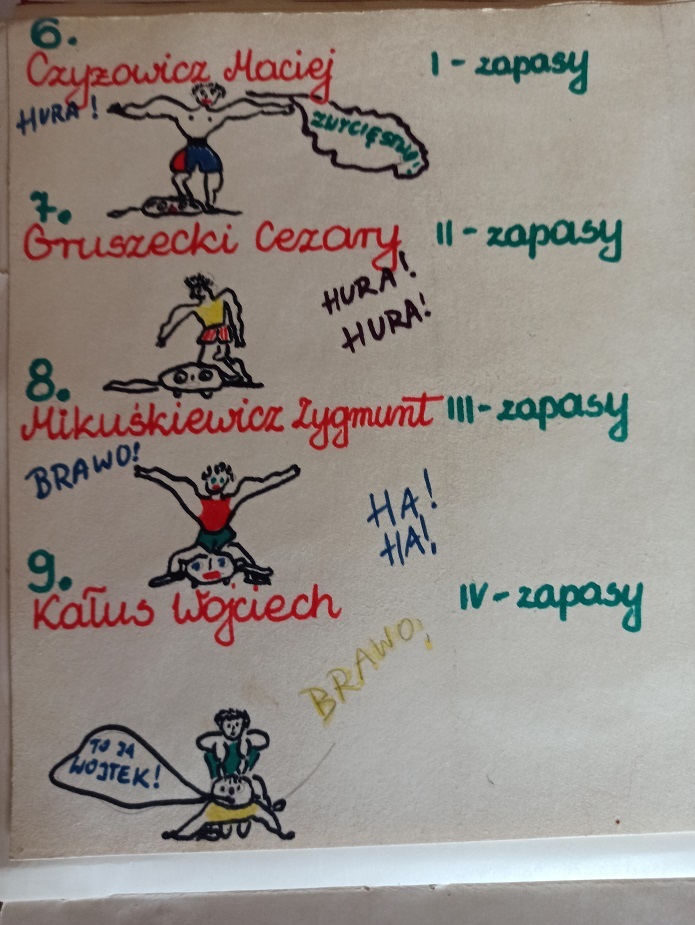 6.
Czyzowicz Maciej I - zapasy
HURA!
ZWYCIĘSTWO!
7.
Gruszecki Cezary II - zapasy
HURA!
HURA!
8.
Mikuśkiewicz Zygmunt III - zapasy
BRAWO!
HA!
HA!
9.
Kałus Wojciech IV - zapasy
BRAWO!
TO JA
WOJTEK!